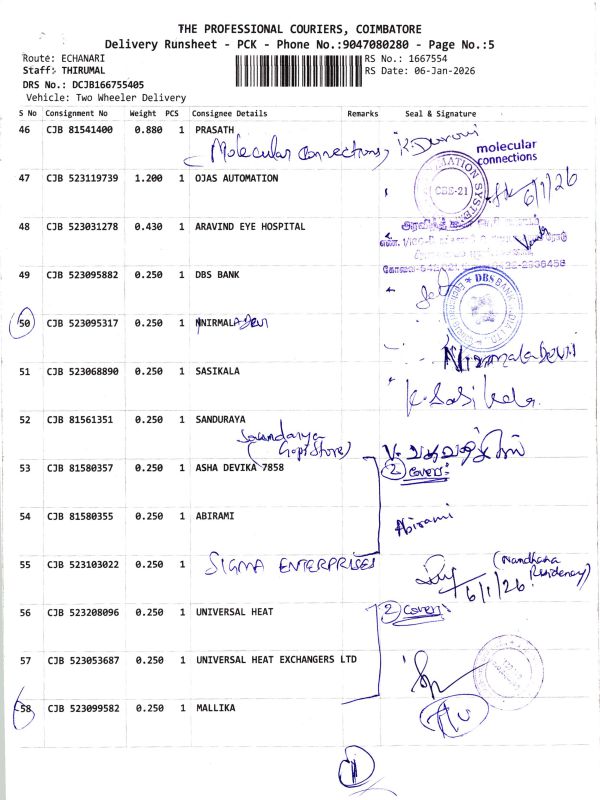 THE PROFESSIONAL COURIERS, COIMBATORE
Delivery Runsheet - PCK - Phone No.:9047080280 - Page No.:5
Route: ECHANARI
RS No.: 1667554
Staff: THIRUMAL
RS Date: 06-Jan-2026
DRS No.: DCJB166755405
Vehicle: Two Wheeler Delivery
S No Consignment No Weight PCS Consignee Details Remarks Seal & Signature
46 CJB 81541400 0.880 1 PRASATH
(Molecular Connections)
molecular connections
47 CJB 523119739 1.200 1 OJAS AUTOMATION
CBE-21
6/1/26
48 CJB 523031278 0.430 1 ARAVIND EYE HOSPITAL
49 CJB 523095882 0.250 1 DBS BANK
DBS BANK
50 CJB 523095317 0.250 1 NIRMALA Devi
Nirmala Devi
51 CJB 523068890 0.250 1 SASIKALA
K. Sasikala.
52 CJB 81561351 0.250 1 SANDURAYA
Soundarya
(Gopi Store)
53 CJB 81580357 0.250 1 ASHA DEVIKA 7858
2 covers:
54 CJB 81580355 0.250 1 ABIRAMI
Abirami
55 CJB 523103022 0.250 1 SIGMA ENTERPRISES
(Nandhana Residency)
6/1/26
56 CJB 523208096 0.250 1 UNIVERSAL HEAT
2 covers:
57 CJB 523053687 0.250 1 UNIVERSAL HEAT EXCHANGERS LTD
58 CJB 523099582 0.250 1 MALLIKA
11